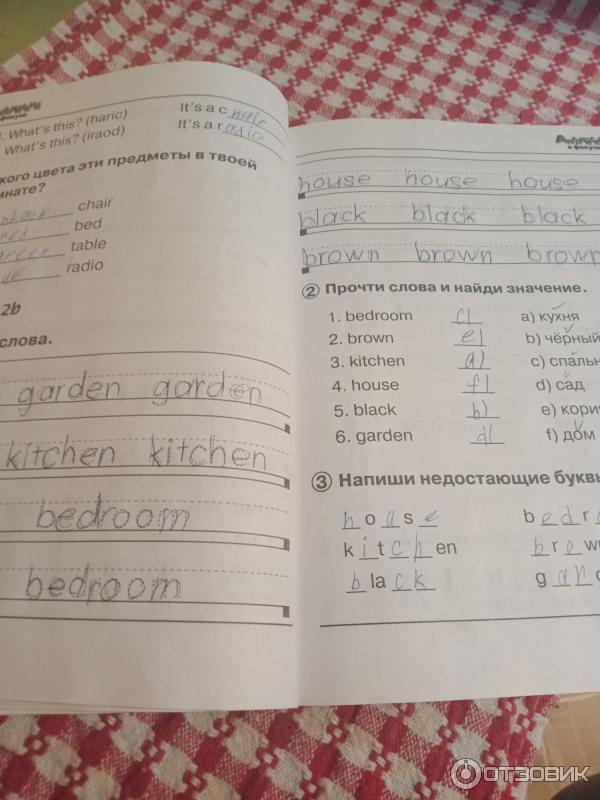 What's this? (haric) It's a chair
What's this? (iraod) It's a radio
кого цвета эти предметы в твоей
black chair
red bed
green table
radio
2b
слова.
garden garden
kitchen kitchen
bedroom
bedroom
в фокусе
house house house
black black black
brown brown brown
2 Прочти слова и найди значение.
1. bedroom c) a) кухня
2. brown e) b) чёрный
3. kitchen a) c) спальн
4. house f) d) сад
5. black b) e) кори
6. garden d) f) дом
3 Напиши недостающие буквы
house bedr
kitchen brow
black gard
ОТЗОВИК